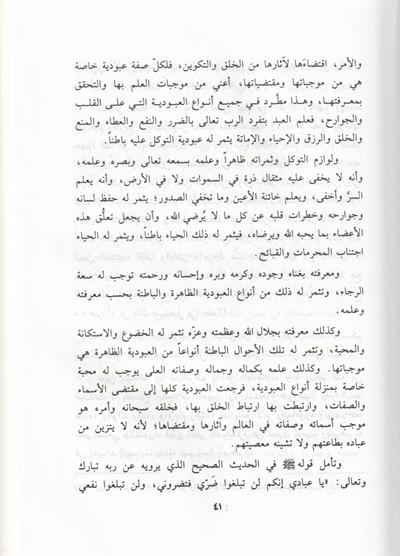 والأمر، اقتضاءَها لآثارها من الخلق والتكوين، فلكلّ صفة عبودية خاصة
هي من موجباتها ومقتضياتها، أعني من موجبات العلم بها والتحقق
بمعرفتها، وهذا مطَّرد في جميع أنواع العبودية التي على القلب
والجوارح، فعلم العبد بتفرد الرب تعالى بالضرر والنفع والعطاء والمنع
والخلق والرزق والإحياء والإماتة يثمر له عبودية التوكل عليه باطناً.
ولوازم التوكل وثمراته ظاهراً وعلمه بسمعه تعالى وبصره وعلمه،
وأنه لا يخفى عليه مثقال ذرة في السموات ولا في الأرض، وأنه يعلم
السرَّ وأخفى، ويعلم خائنة الأعين وما تخفي الصدور؛ يثمر له حفظ لسانه
وجوارحه وخطرات قلبه عن كل ما لا يُرضي الله، وأن يجعل تعلُّق هذه
الأعضاء بما يحبه الله ويرضاه، فيثمر له ذلك الحياء باطناً، ويثمر له الحياء
اجتناب المحرمات والقبائح.
ومعرفته بغناه وجوده وكرمه وبره وإحسانه ورحمته توجب له سعة
الرجاء، وتثمر له ذلك من أنواع العبودية الظاهرة والباطنة بحسب معرفته
وعلمه.
وكذلك معرفته بجلال الله وعظمته وعزّه تثمر له الخضوع والاستكانة
والمحبة، وتثمر له تلك الأحوال الباطنة أنواعاً من العبودية الظاهرة هي
موجباتها. وكذلك علمه بكماله وجماله وصفاته العلى يوجب له محبة
خاصة بمنزلة أنواع العبودية، فرجعت العبودية كلها إلى مقتضى الأسماء
والصفات، وارتبطت بها ارتباط الخلق بها، فخلقه سبحانه وأمره هو
موجب أسمائه وصفاته في العالم وآثارها ومقتضاها؛ لأنه لا يتزين من
عباده بطاعتهم ولا تشينه معصيتهم.
وتأمل قوله ﷺ في الحديث الصحيح الذي يرويه عن ربه تبارك
وتعالى: «يا عبادي إنكم لن تبلغوا ضَرّي فتضروني، ولن تبلغوا نفعي
٤١